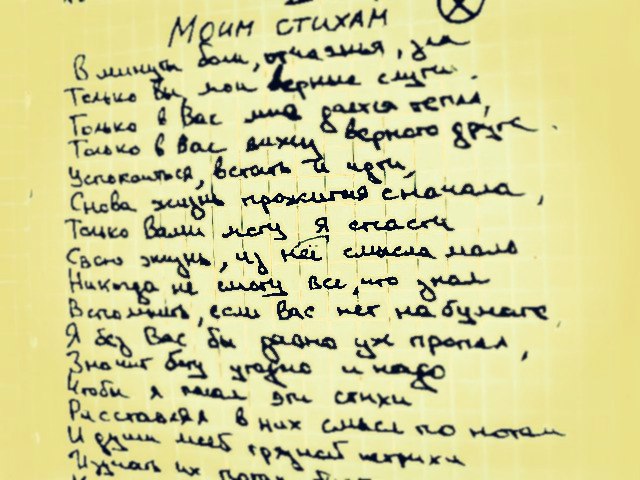 Моим стихам
В минуты боли, отчаянья, зла
Только Вы, мои верные слуги.
Только в Вас мне даётся тепла,
Только в Вас вижу верного друга.
Успокоиться, встать и идти,
Снова жизнь прожития сначала,
Только Вами могу я спасти
Свою жизнь, из неё смысла мало
Никогда не смогу все, что знал
Вспомнить, если Вас нет на бумаге
Я без Вас бы давно уж пропал,
Значит богу угодно и надо
Чтобы я писал эти стихи
Расставляя в них смысл по нотам
И души моей грязной штрихи
Изучать их потом